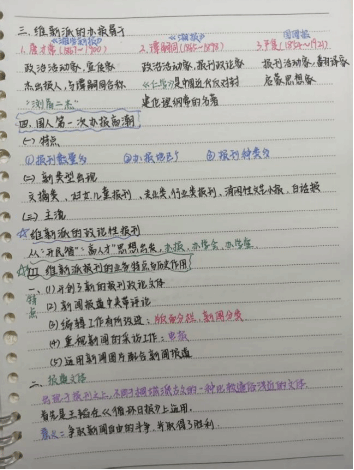 三、维新派的办报骨干
《湘学新报》 《湘报》 国闻报
1.唐才常(1867-1900) 2.谭嗣同(1865-1898) 3.严复(1854-1921)
政治活动家,宣传家 政治活动家,报刊政论家 报刊活动家,翻译家
杰出报人,与谭嗣同合称 《仁学》是中国近代反对封 启蒙思想家
"浏阳二杰" 建伦理纲常的名著
四、国人第一次办报高潮
(一)特点
①报刊数量多 ②办报地点广 ③报刊种类多
(二)新类型出现
文摘类、妇女儿童报刊、专业类、行业类报刊、消闲性文艺小报、白话报
(三)主流
☆维新派的政论性报刊
从"开民智""育人才"思想出发,办报、办学会、办学堂
☆四 维新派报刊的业务特点与历史作用
特点
一、(1)开创了新的报刊政论文体
(2)新闻报道中夹带评论
(3)编辑工作有所改进:版面分栏、新闻分类
(4)重视新闻的采访工作:
(5)运用新闻图片配合新闻报道
二、报章文体
出现于报刊之上,不同于桐城派古文的一种比较通俗浅近的文体
首先是王韬在《循环日报》上运用.
意义:争取新闻自由的斗争,并取得了胜利.